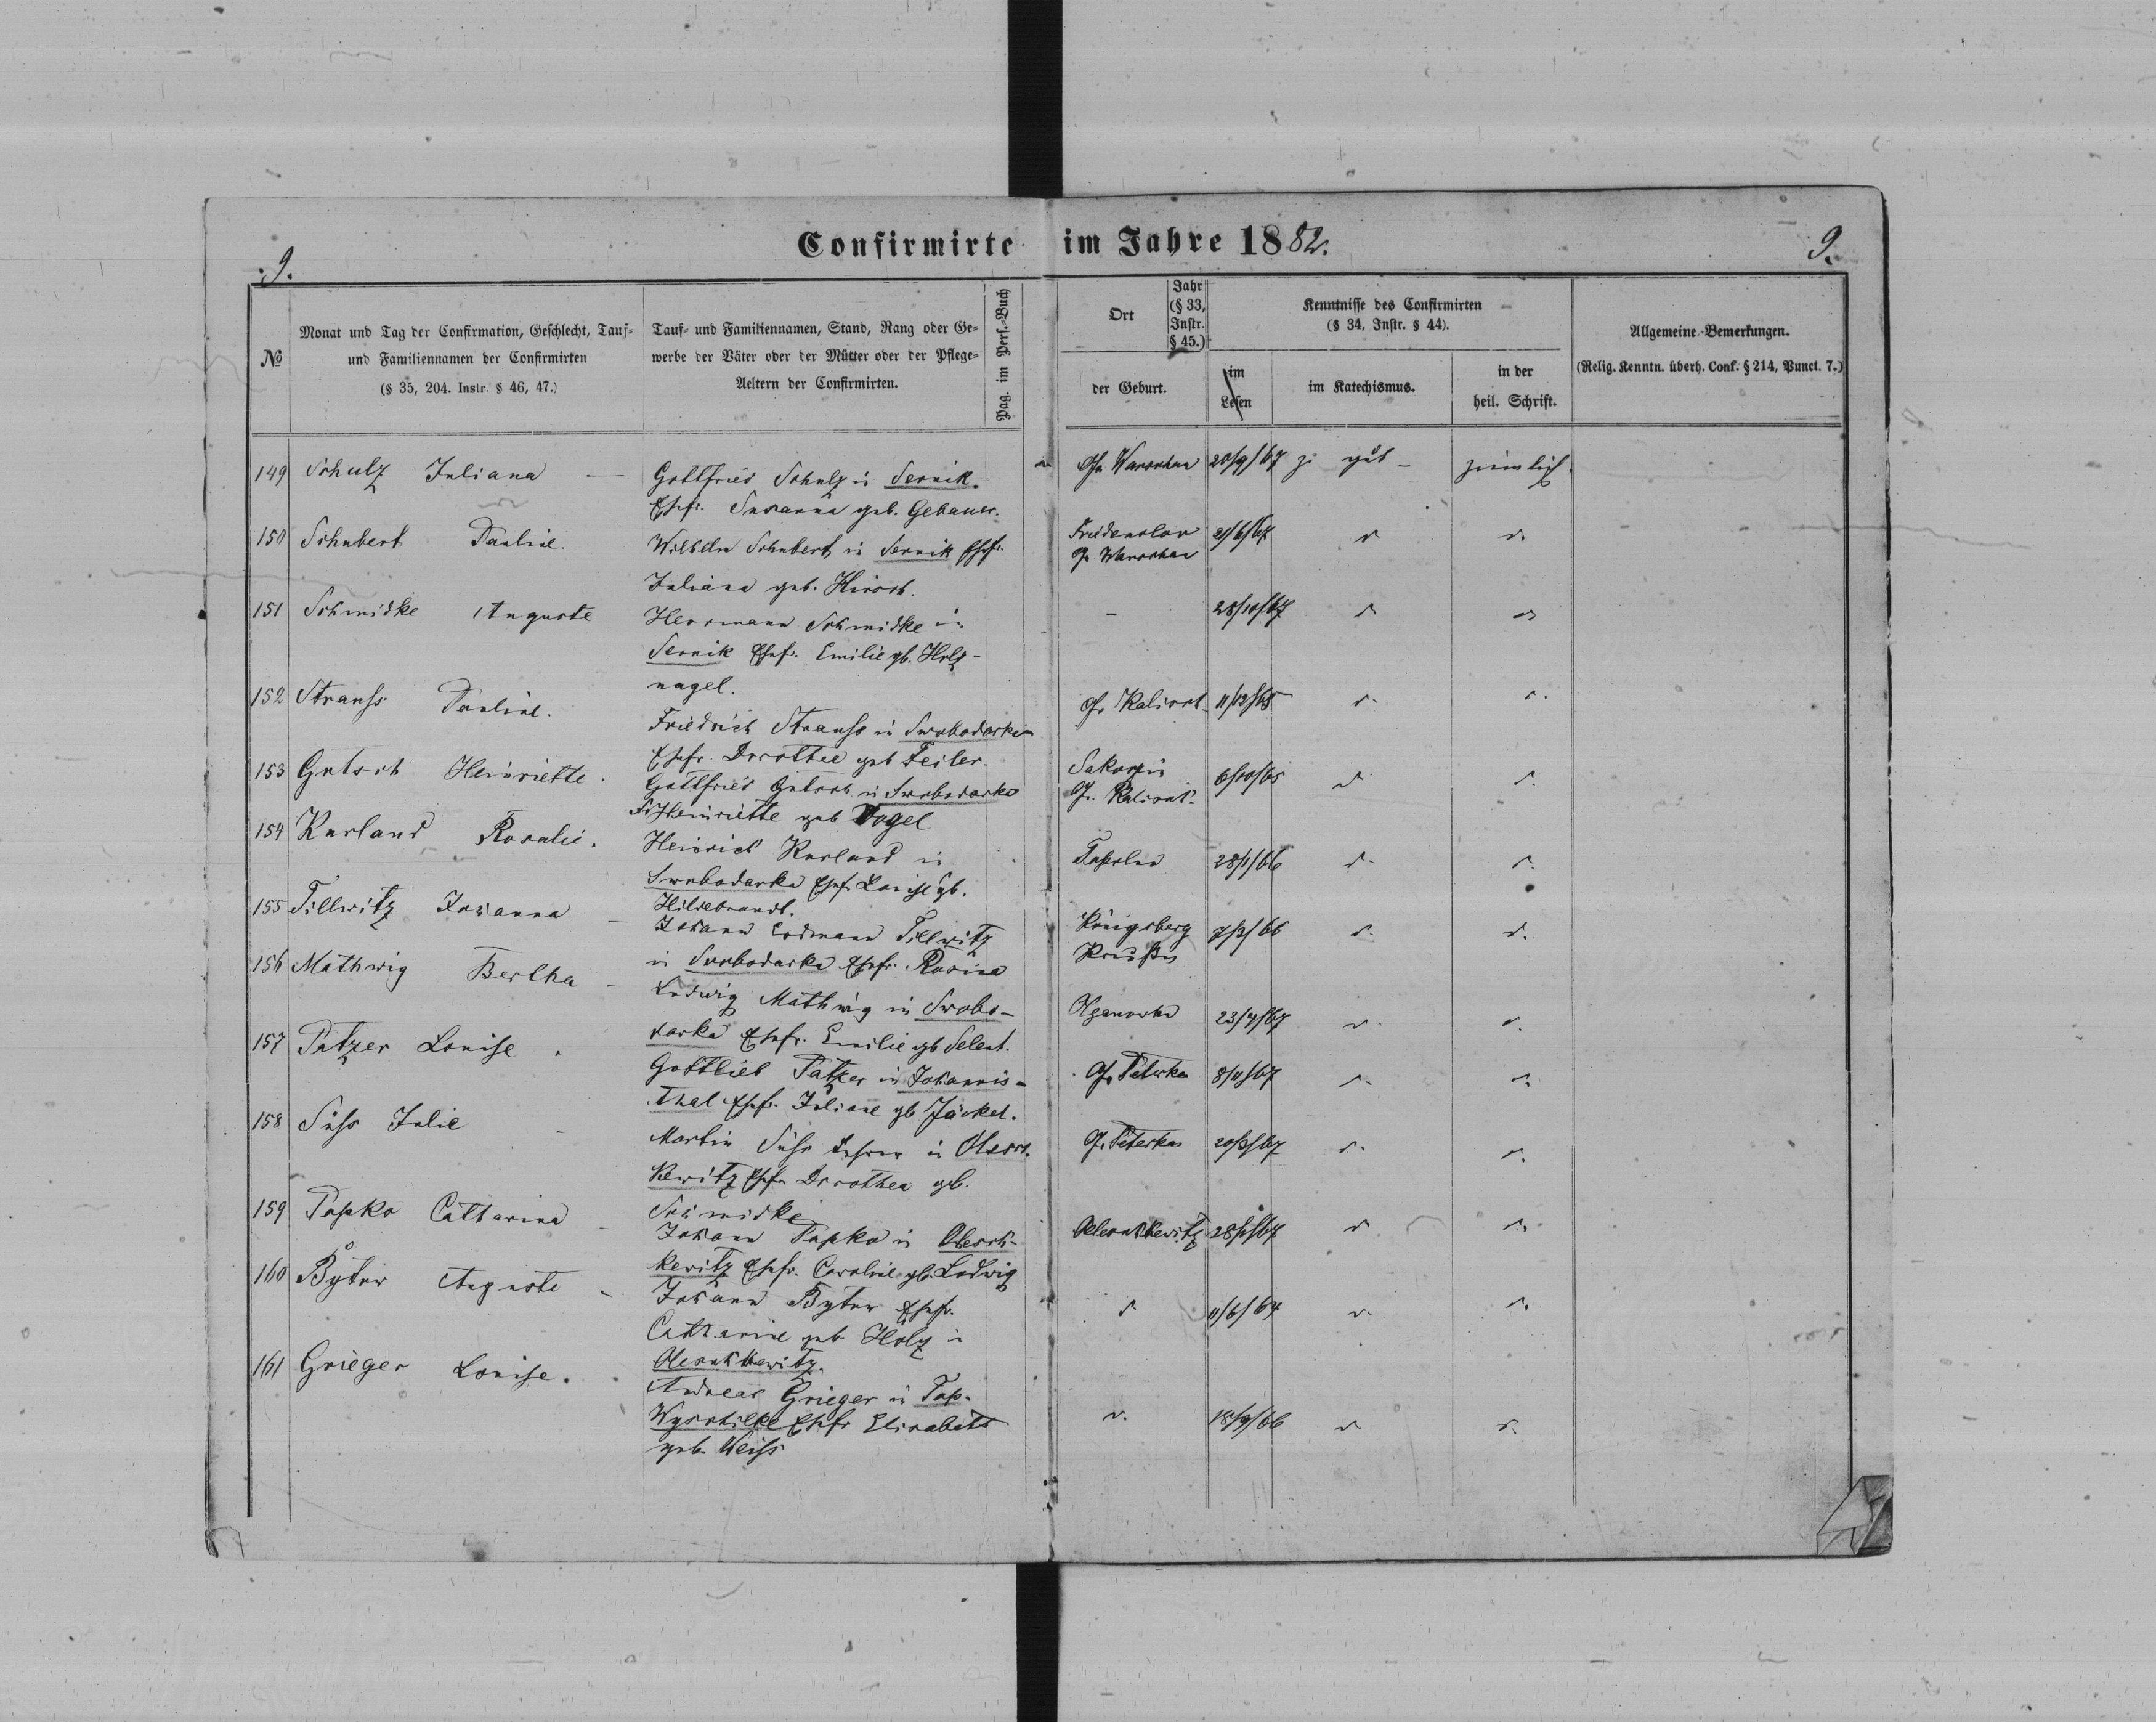 Confirmirte im Jahre 1882.
9.
9.
№
Monat und Tag der Confirmation, Geschlecht, Tauf-
und Familiennamen der Confirmirten
(§ 35, 204. Instr. § 46, 47.)
Tauf- und Familiennamen, Stand, Rang oder Ge-
werbe der Väter oder der Mütter oder der Pflege-
Aeltern der Confirmirten.
Pag. im Pers.-Buch
Ort
Jahr
(§ 33,
Instr.
§ 45.)
der Geburt.
Kenntnisse des Confirmirten
(§ 34, Instr. § 44).
im
Lesen
im Katechismus.
in der
heil. Schrift.
Allgemeine Bemerkungen.
(Relig. Kenntn. überh. Conf. § 214, Punct. 7.)
149 Schulz Juliana
Gottfried Schulz in Sernik.
Ehefr. Susanna geb. Gebauer.
Gv. Warschau 20/9/67 z. gut ziemlich.
150 Schubert Pauline.
Wilhelm Schubert in Sernik Ehefr.
Juliana geb. Hirsch.
Gv. Warschau 21/6/67
151 Schmidke Auguste
Herrmann Schmidke in
Sernik Ehefr. Emilie gb. Holz-
nagel.
– 28/10/67
152 Strauss Pauline.
Friedrich Strauss in Swobodarka
Ehefr. Dorothee geb Feiler.
Gv. Kalisch 11/12/65
153 Gutsch Heinriette.
Gottfried Gutsch in Swobodarka
Fr Heinriette geb Vogel
Gv. Kalisch. 6/10/65
154 Kurland Rosalie.
Heinrich Kurland in
Swobodarka Ehefr. Louise gb.
Hildebrandt.
28/1/66
155 Tillwitz Johanna
Johann Erdmann Tillwitz
in Swobodarka Ehefr. Rosina
Königsberg
Preußen
156 Mathwig Bertha
Ludwig Mathwig in Swobo-
darka Ehefr. Emilie gb Selent.
Olganowka 23/4/67
157 Patzer Louise.
Gottlieb Patzer in Johannis-
thal Ehefr. Juliane gb Jäckel.
Gv. Peterkau 8/11/67
158 Süss Julie
Martin Süss Lehrer in Olesch-
kewitz Ehefr. Dorothea gb.
Schmidke
Gv. Peterkau
159 Papko Catharina
Johann Papko in Olesch-
kewitz Ehefr. Caroline gb. Ludwig
Oleschkewitz
160 Bytner Auguste
Johann Bytner Ehefr.
Catharine geb. Holz in
Oleschkewitz.
161 Grieger Louise.
Andreas Grieger in Top.
Ehefr Elisabeth
geb. Weiss
18/9/66